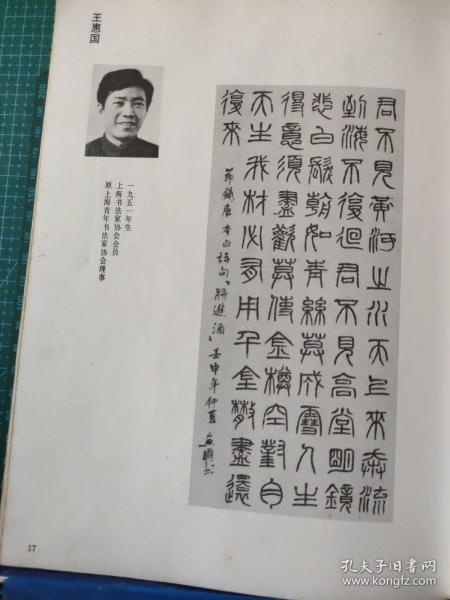 王惠国
一九五一年生
上海书法家协会会员
原上海青年书法家协会理事
君不見黃河之水天上來奔流
到海不復迴君不見高堂明鏡
悲白髮朝如青絲莫成雪人生
得意須盡歡莫使金樽空對月
天生我材必有用千金散盡還
復來
節錄唐李白詩句「將進酒」壬申年仲夏惠國书
17
孔夫子旧书网
www.kongfz.com